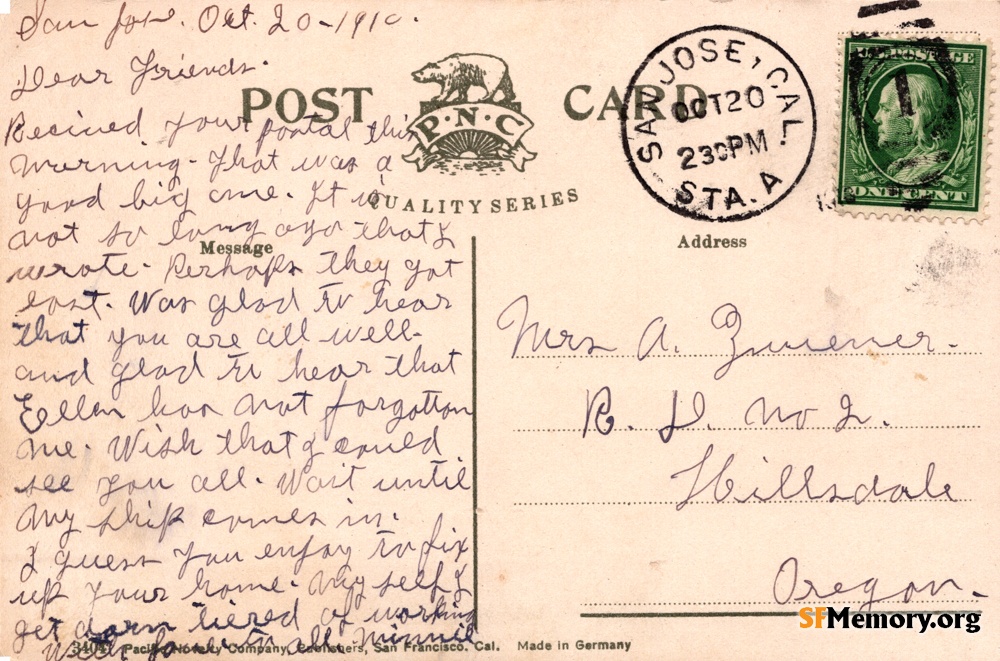 San Jose. Oct. 20-1910.
Dear Friends.
POST CARD
P·N·C
QUALITY SERIES
SAN JOSE, CAL.
OCT 20
230PM
STA. A
U.S. POSTAGE
1
ONE CENT
Recived your postal this
morning. That was a
good big one. It is
not so long ago that I
wrote. Perhaps they got
lost. Was glad to hear
that you are all well-
and glad to hear that
Ellen has not forgotton
me. Wish that I could
see you all. Wait until
my ship comes in.
I guess you enjoy to fix
up your home. My self I
get darn tiered of working
With love to all Minnie
Message
Address
Mrs A. Zwiener.
R. D. No 2.
Hillsdale
Oregon.
Pacific Novelty Company, Publishers, San Francisco, Cal. Made in Germany
SFMemory.org